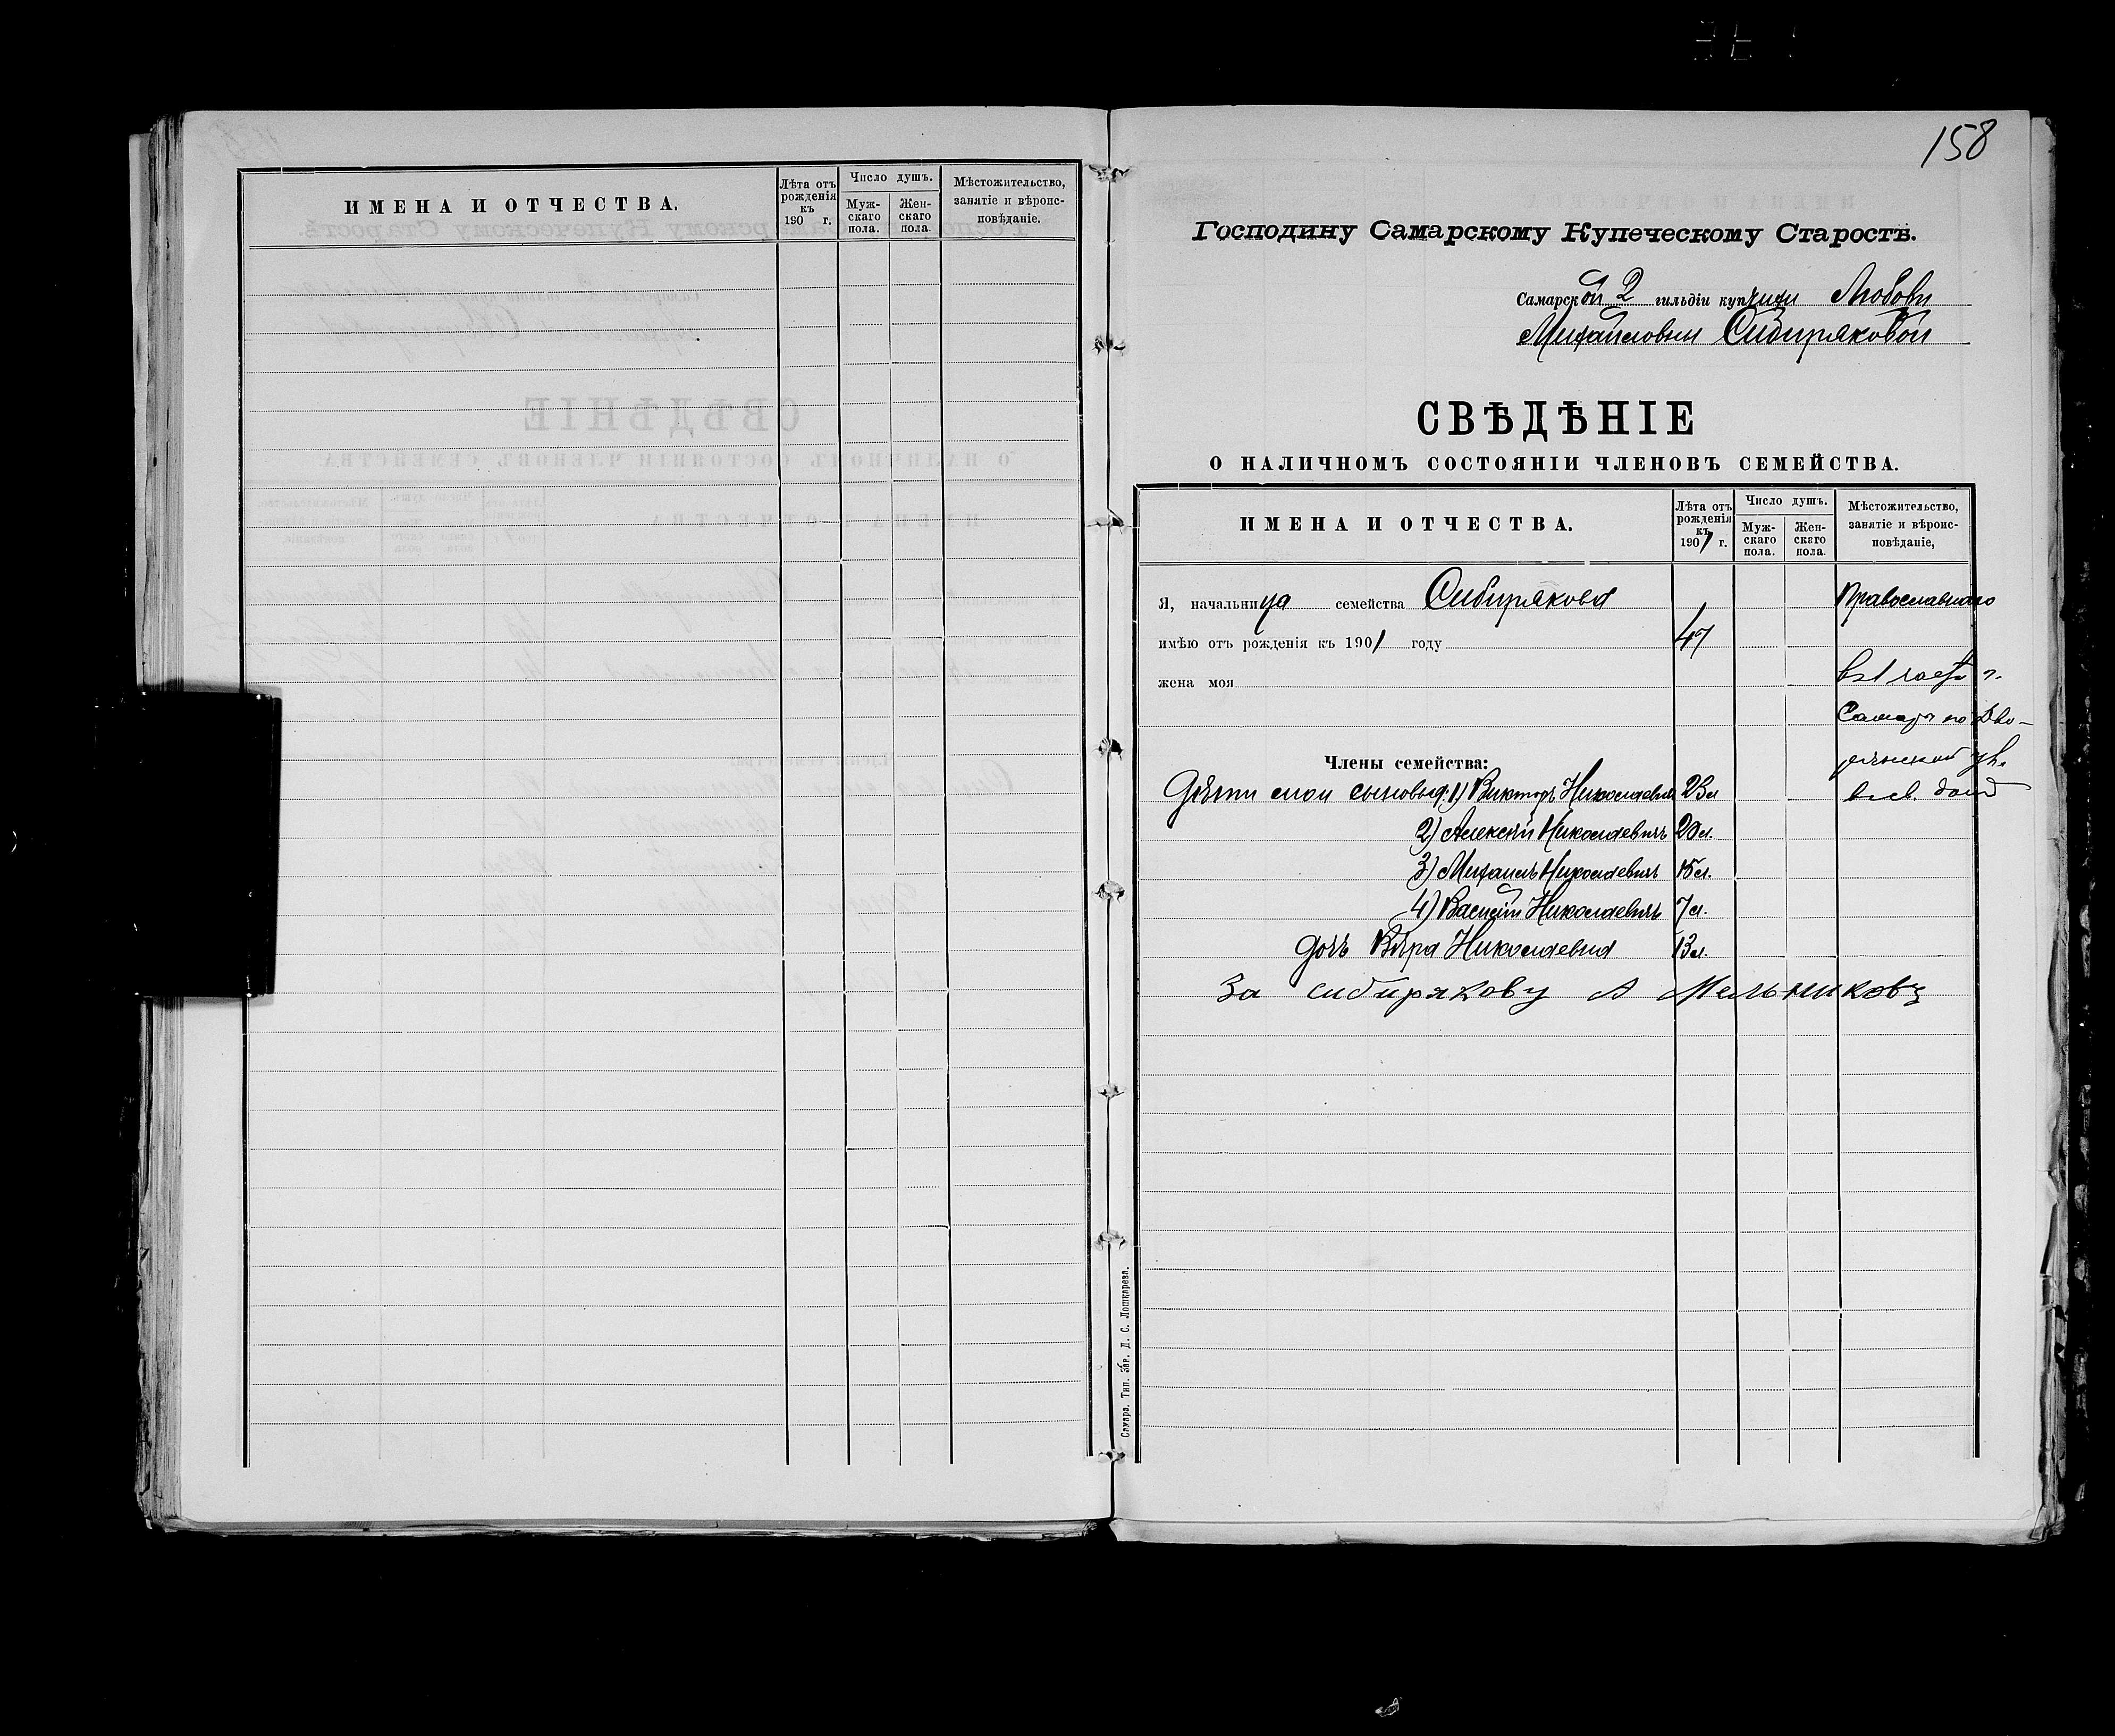 ИМЕНА И ОТЧЕСТВА.
Лѣта отъ рожденія къ 190 г.
Число душъ.
Мужскаго пола.
Женскаго пола.
Мѣстожительство, занятіе и вѣроисповѣданіе.
158
Господину Самарскому Купеческому Старостѣ.
Самарской 2 гильдіи купчихи Любови
Михайловны Сибиряковой
СВѢДѢНІЕ
О НАЛИЧНОМЪ СОСТОЯНІИ ЧЛЕНОВЪ СЕМЕЙСТВА.
ИМЕНА И ОТЧЕСТВА.
Лѣта отъ рожденія къ 1901 г.
Число душъ.
Мужскаго пола.
Женскаго пола.
Мѣстожительство, занятіе и вѣроисповѣданіе,
Я, начальница семейства Сибирякова Православнаго
имѣю отъ рожденія къ 1901 году 47
жена моя в 1 части г.
Самары по Дво-
рянской ул.
Члены семейства:
Дѣти мои сыновья: 1) Викторъ Николаевичъ 23 л. в св. домѣ
2) Алексѣй Николаевичъ 20 л.
3) Михаилъ Николаевичъ 15 л.
4) Василій Николаевичъ 7 л.
дочь Вѣра Николаевна 13 л.
За Сибирякову А Мельниковъ
Самара. Тип. Зав. Д. С. Лошкарева.